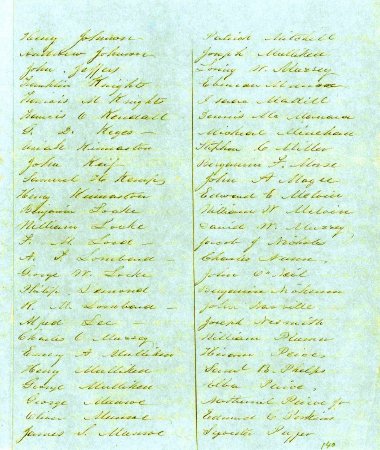 Henry Johnson
Andrew Johnson
John Jeffers
Franklin Knights
Francis M Knights
Francis C Kendall
G. D. Keyes
Kinnaston
John Keif
Samuel H. Kemp
Henry Kinnaston
Benjamin Locke
William Locke
F. M. Lord
A. F. Lombard
George W. Locke
Philip
K. M. Lombard
Alfred Lee
Charles C. Murray
Emery A Mulliken
Henry Mulliken
George Mulliken
George Munroe
Oliver Munroe
James S. Munroe
Patrick Mitchell
Joseph Mulliken
W. Murray
Ebenezer Munroe
Isaac
Dennis Mc
Michael
Stephen C. Miller
Benjamin F. Muse
John A Magee
Edward E. Melvin
William W Melvin
David W. Murray
Jacob F Nichols
Charles Nunn
John O'Neil
Benjamin
John
Joseph Nesmith
William Plumer
Hiram Peirce
Samel B. Phelps
Peirce
Nathaniel Peirce Jr
Edmund C. Perkins
Sylvester
140